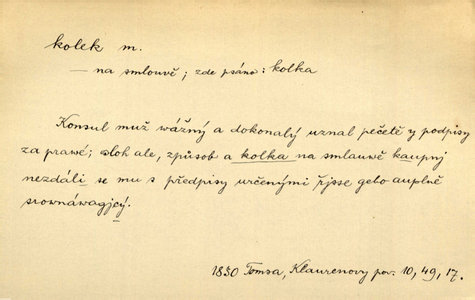 kolek m.
— na smlouvě; zde psáno: kolka
Konsul muž wážný a dokonalý uznal pečetě y podpisy
za prawé; sloh ale, způsob a kolka na smlauwě kaupnj
nezdáli se mu s předpisy určenými řjsse geho auplně
srownáwagjcý.
1830 Tomsa, Klaurenovy pov. 10, 49, 17.